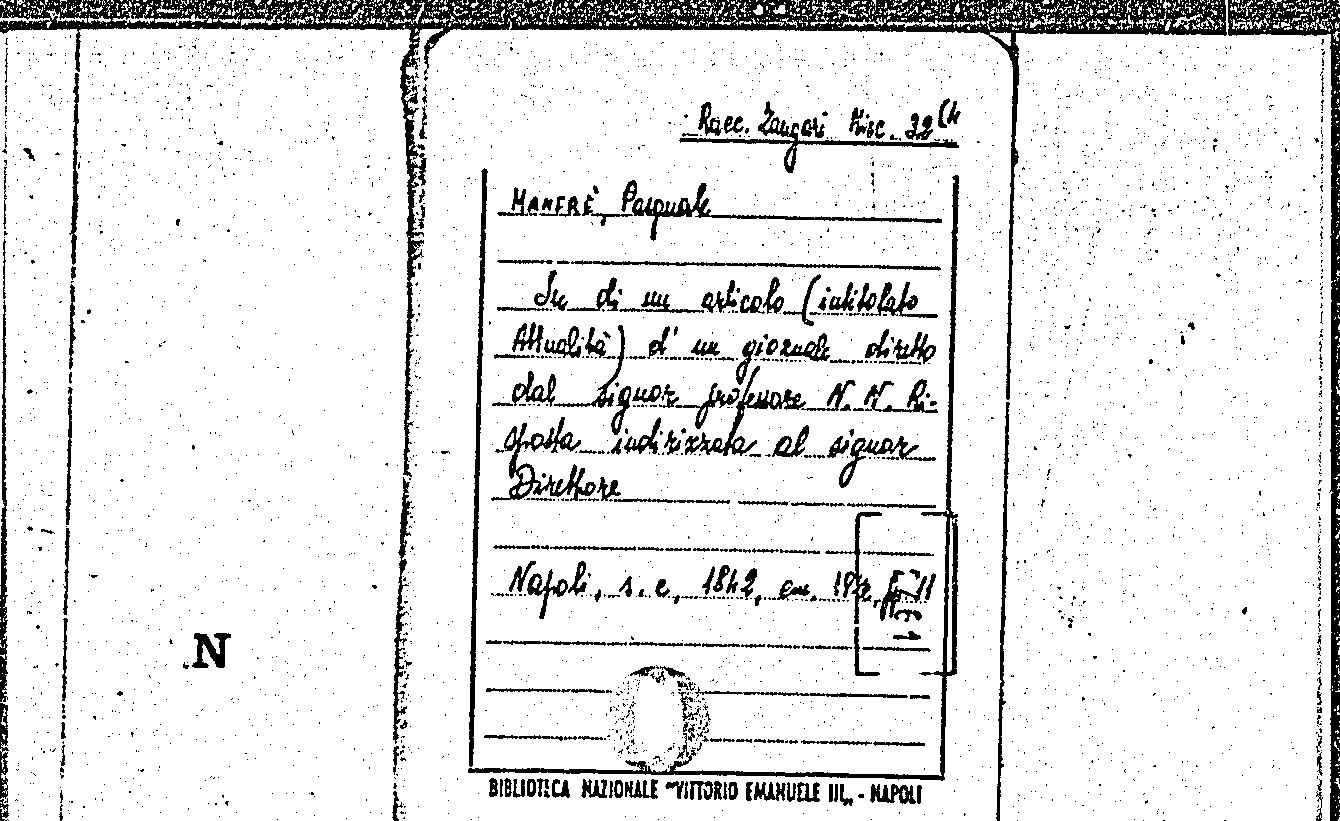 Racc. Zangari Misc. 32(4
MANFRÈ, Pasquale
Su di un articolo (intitolato
Attualità) d' un giornale diretto
dal signor professore N. N. Ri-
sposta indirizzata al signor
Direttore
Napoli, s. e, 1842, cm. 19
N
BIBLIOTECA NAZIONALE "VITTORIO EMANUELE III„ - NAPOLI